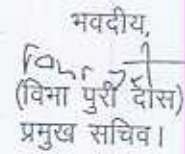 भवदीय,
(विभा पुरी दास)
प्रमुख सचिव।